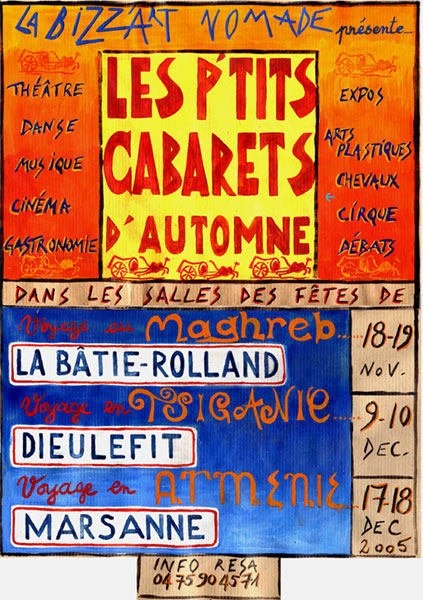 LA BIZZ'ART NOMADE présente...
THÉÂTRE
DANSE
MUSIQUE
CINÉMA
GASTRONOMIE
LES P'TITS
CABARETS
D'AUTOMNE
EXPOS
ARTS
PLASTIQUES
CHEVAUX
CIRQUE
DÉBATS
DANS LES SALLES DES FÊTES DE
Voyage au Maghreb..... 18-19
NOV.
LA BÂTIE-ROLLAND
Voyage en TSIGANIE..... 9-10
DEC.
DIEULEFIT
Voyage en ARMENIE..... 17-18
DEC
2005
MARSANNE
INFO RESA
04 75 90 45 71